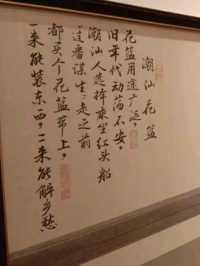 潮汕花篮
花篮用途广泛，
旧年代动荡不安，
潮汕人选择乘坐红头船
过番谋生，走之前
都买个花篮带上，
一来能装东西，二来能解乡愁